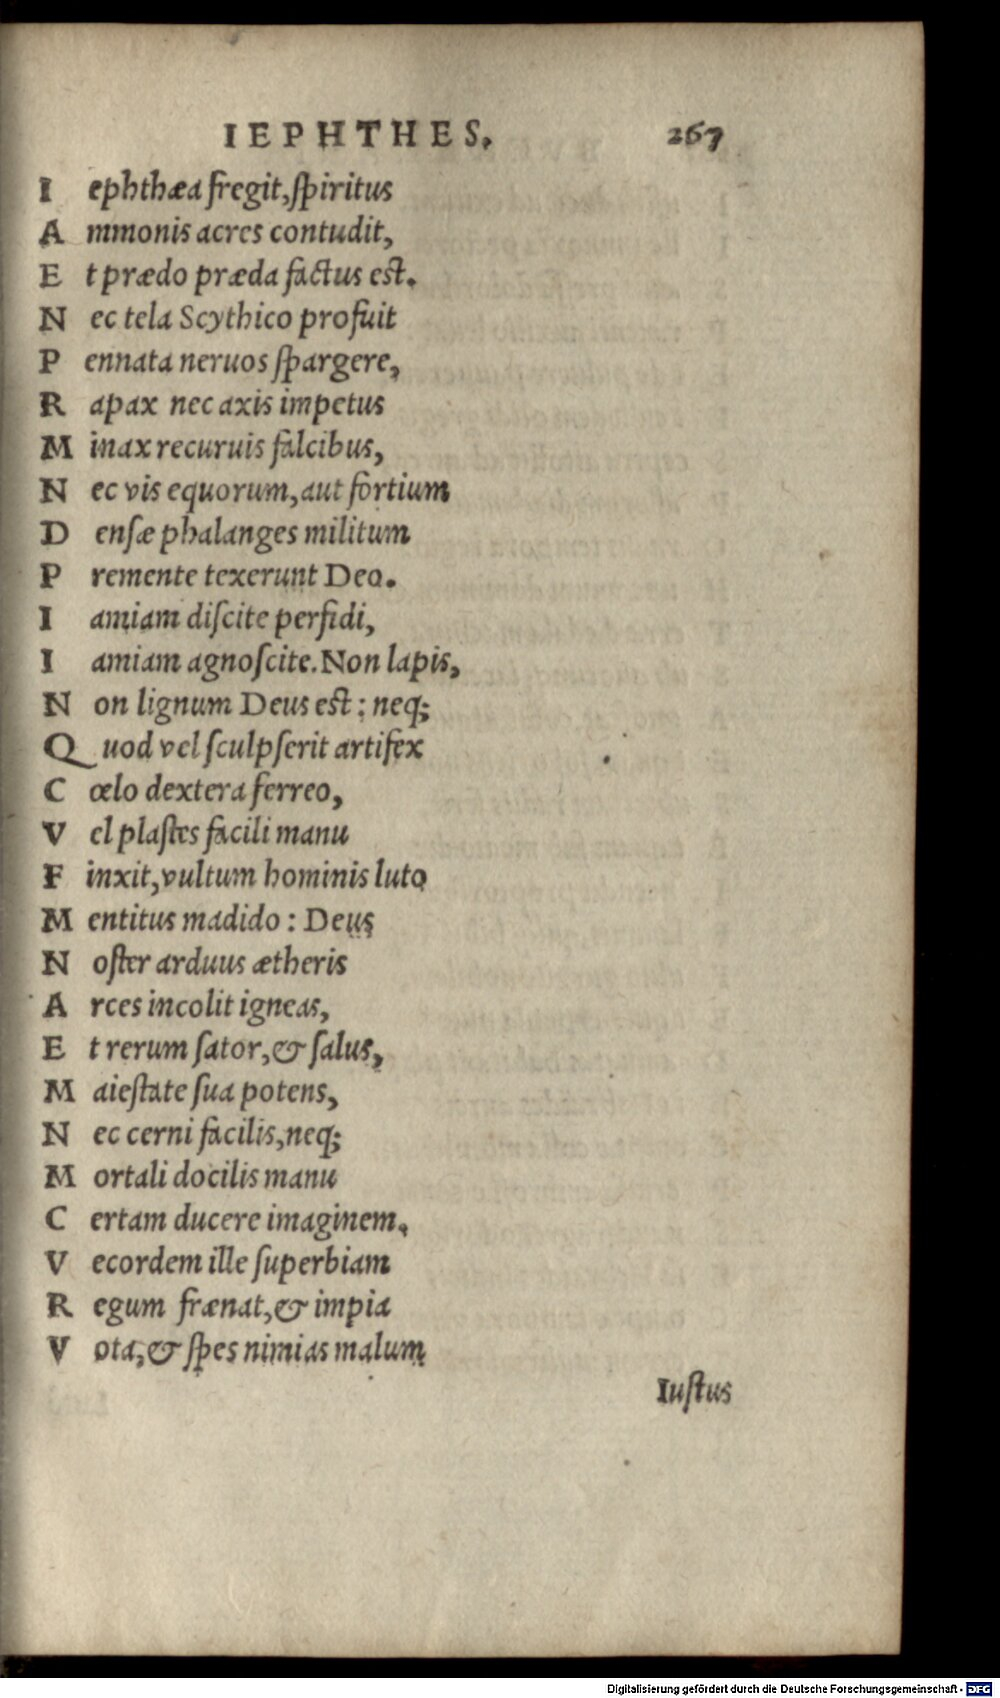 IEPHTHES. 267
I ephthæa fregit, ſpiritus
A mmonis acres contudit,
E t prædo præda factus est.
N ec tela Scythico profuit
P ennata neruos ſpargere,
R apax nec axis impetus
M inax recuruis falcibus,
N ec vis equorum, aut fortium
D enſæ phalanges militum
P remente texerunt Deo.
I amiam diſcite perfidi,
I amiam agnoſcite. Non lapis,
N on lignum Deus est: neq;
Q uod vel ſculpſerit artifex
C œlo dextera ferreo,
V el plaſtes facili manu
F inxit, vultum hominis luto
M entitus madido: Deus
N oſter arduus ætheris
A rces incolit igneas,
E t rerum ſator, & ſalus,
M aieſtate ſua potens,
N ec cerni facilis, neq;
M ortali docilis manu
C ertam ducere imaginem.
V ecordem ille ſuperbiam
R egum frænat, & impia
V ota, & ſpes nimias malum
Iuſtus
Digitalisierung gefördert durch die Deutsche Forschungsgemeinschaft - DFG